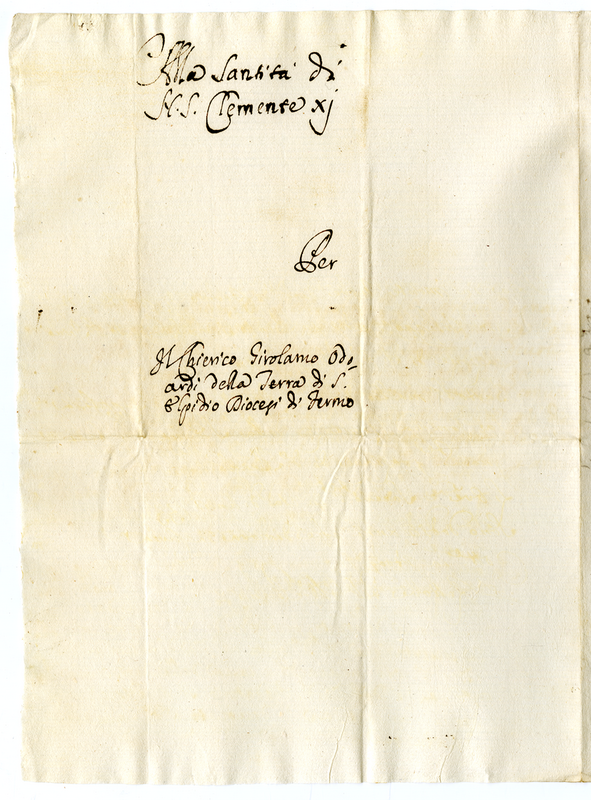 Alla Santità di
N. S. Clemente xj
Per
Il Chierico Girolamo Odo-
ardi della Terra di S.
Elpidio Diocesi di Fermo